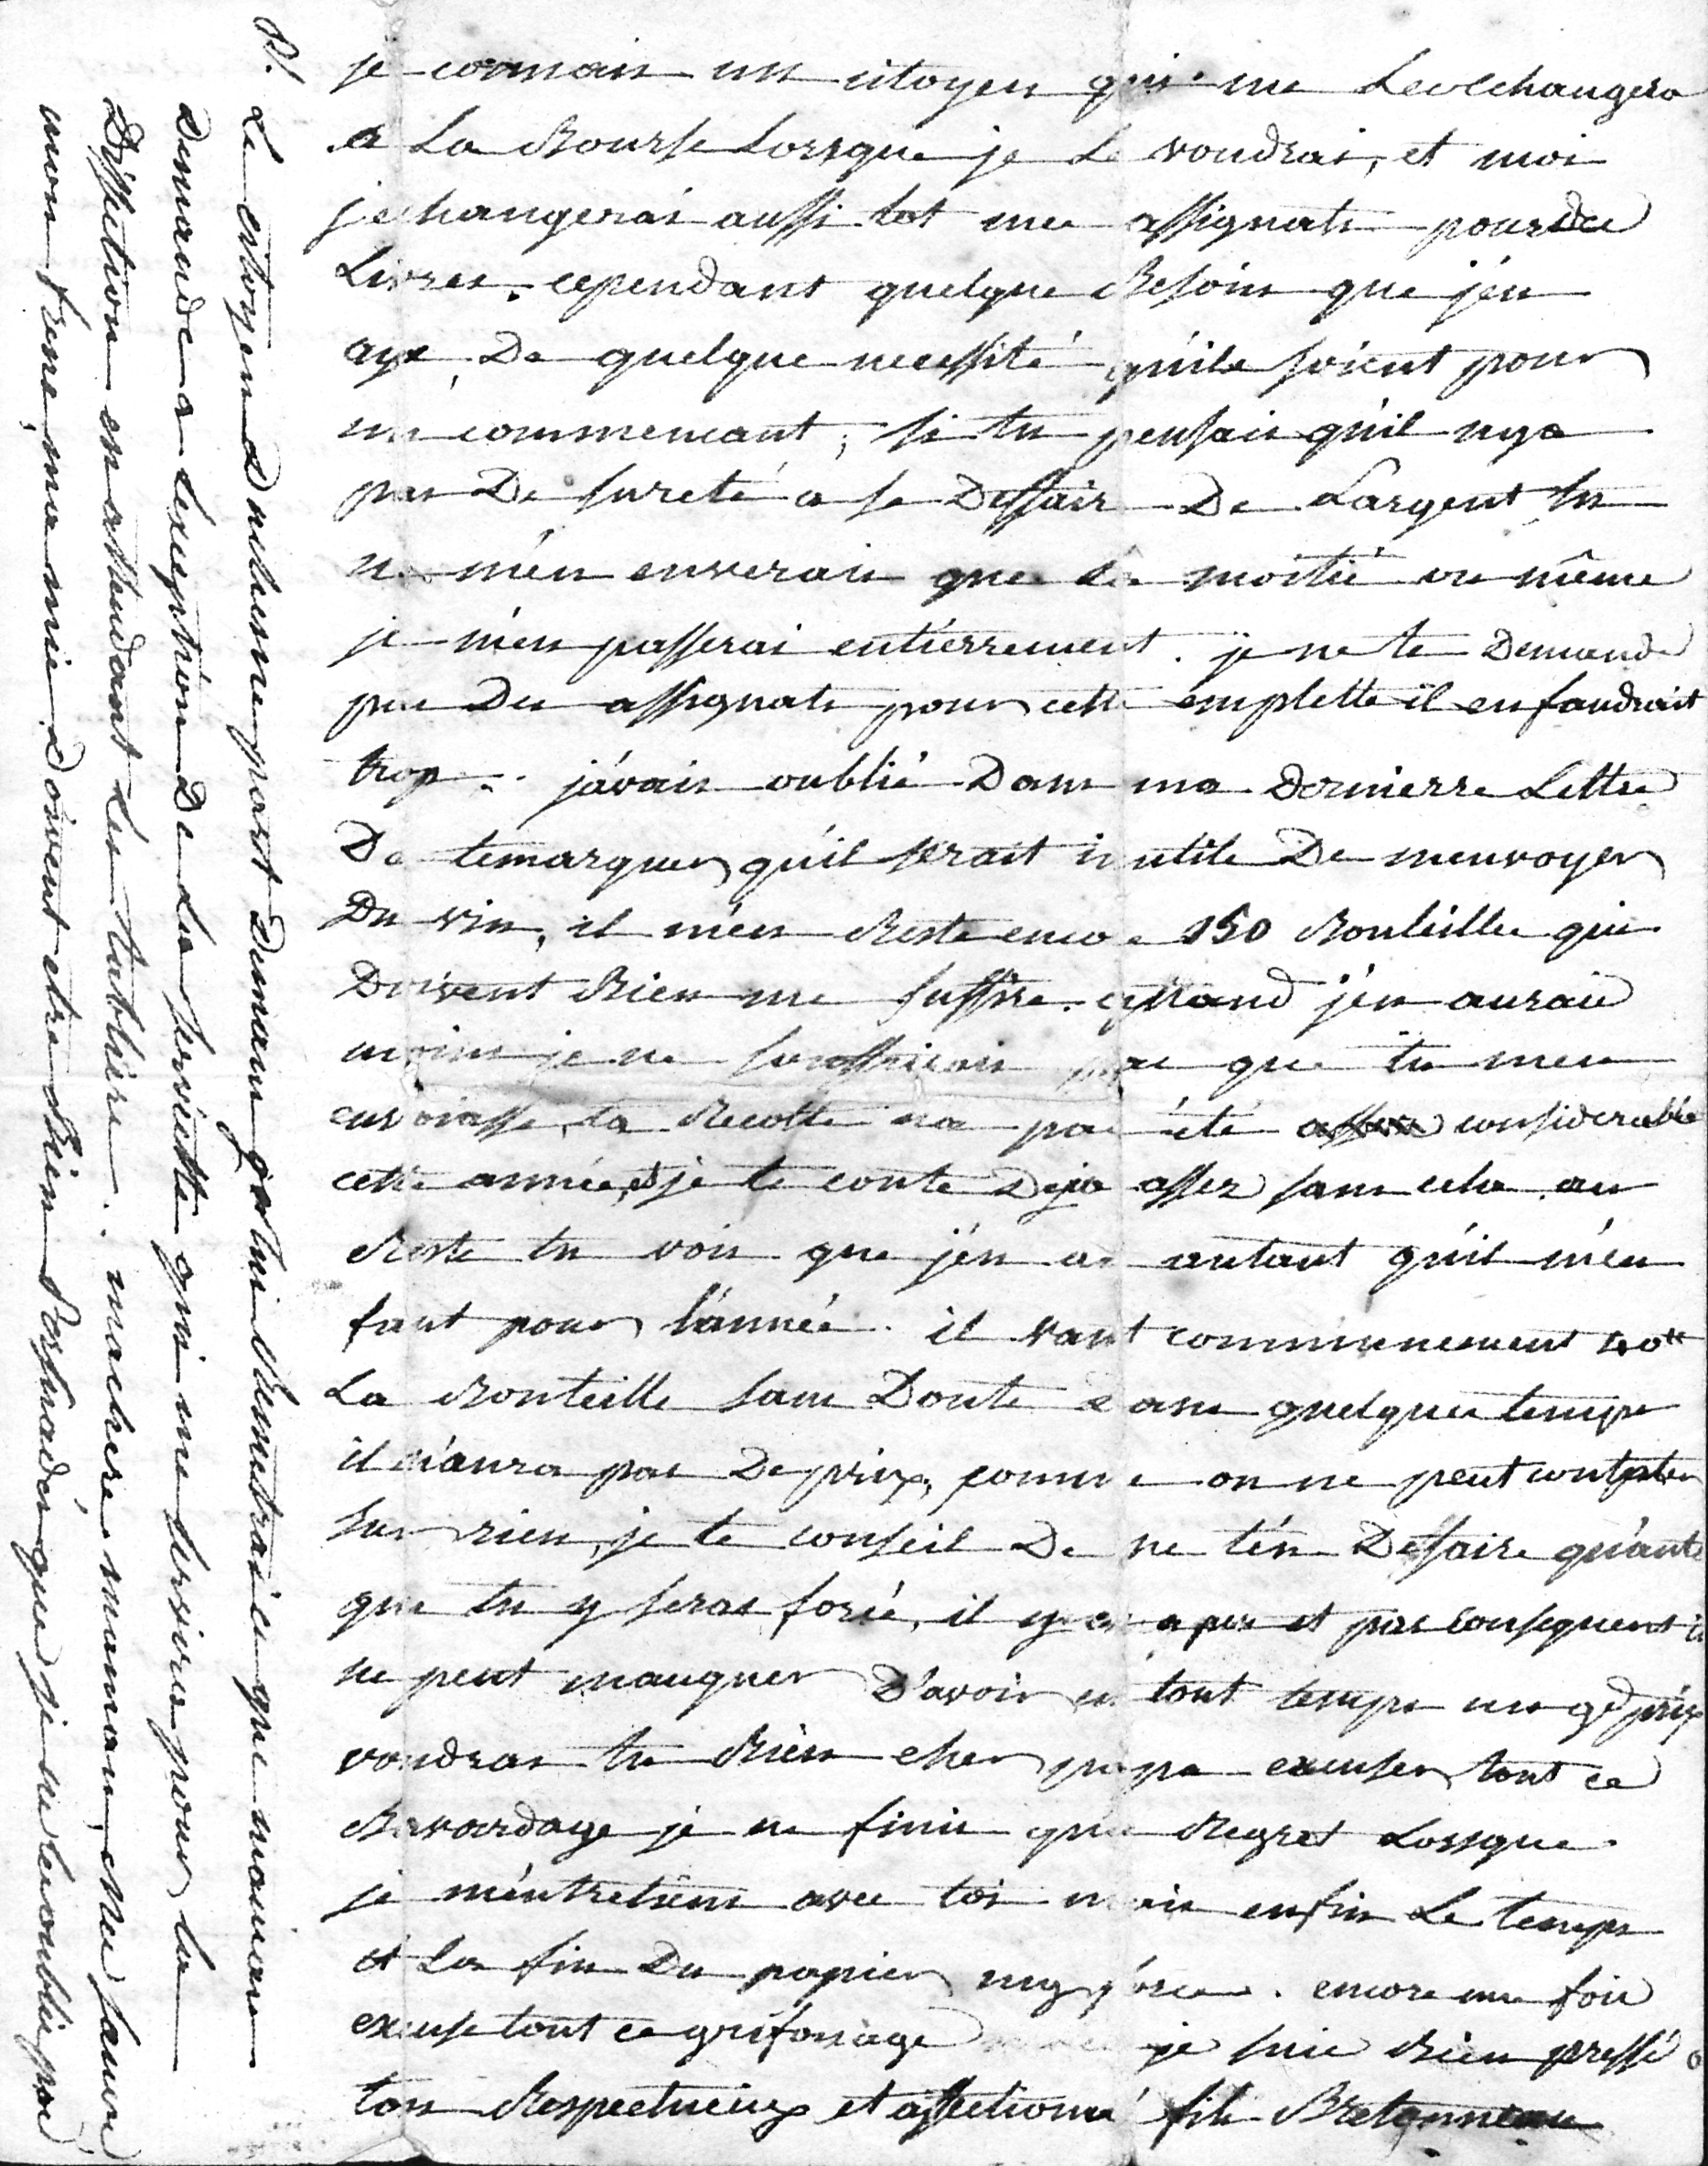 je connais un citoyen qui me Les echangera
a La Bourse Lorsque je Le voudrai, et moi
jechangerai aussi tot mes assignats pour des
Livres. cependant quelque Besoin que j'en
aye De quelque necessité qu'ils soient pour
un commencant, si tu pensais qu'il nya
pas De sureté a se Deffair De Largent tu
ne m'en enverais que La moitié ou même
je m'en passerai entierrement. je ne te Demande
pas Des assignats pour cette emplette il en faudrait
trop. j'avais oublié Dans ma Dernierre Lettre
De temarquer qu'il serait inutile De menvoyer
Du vin, il m'en Reste encore 150 Bouteilles qui
Doivent Bien me suffire. quand j'en aurais
moins je ne souffrirais pas que tu men
envoiasse, ta Recolte na pas été considerable
cette année, et je te coute Deja assez sans cela. au
Reste tu vois que j'en ai autant qu'il m'en
faut pour l'année. il vaut communement
La Bouteille sans Doute Dans quelques temps
il n'aura pas De prix, comme on ne peut compter
sur rien, je te conseil De ne t'en Defaire qu'autant
que tu y seras forcé, il y en a peu et par consequent il
ne peut manquer D'avoir en tout temps un gd prix
voudras tu Bien cher papa excuser tout ce
Bavardage je ne finis qua Regret Lorsque
je m'entretiens avec toi mais enfin Le temps
et La fin Du papier my force. encore une fois
excuse tout ce grifonage je suis Bien pressé
ton Respectueux et affectionné fils Bretonneau
Le citoyen Duchesne part Demain je lui Remettrai ce que maman
Demande a Lexception De La serviette qui me servira pour la
Disséction en attendant Les tabliers. ma chere maman, mes sœurs
mon frere, ma mie Doivent etre Bien Persuadés que je ne les oublie pas